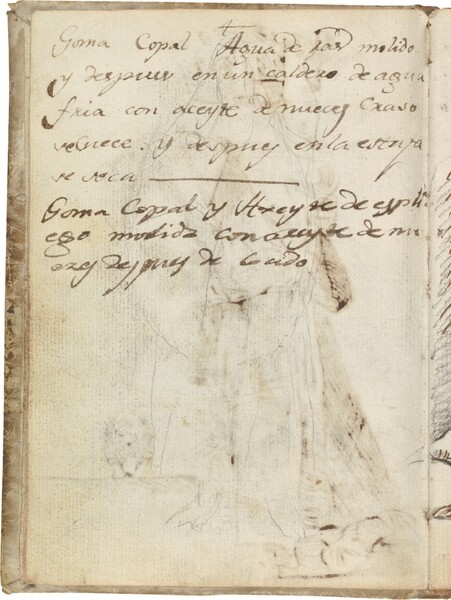 Goma Copal Agua de ras molido
y despues en un caldero de agua
fria con aceyte de nueces Craso
se cuece. y despues en la estufa
se seca
Goma Copal y Azeyte de espli
ego molida con aceyte de nu
ezes despues de